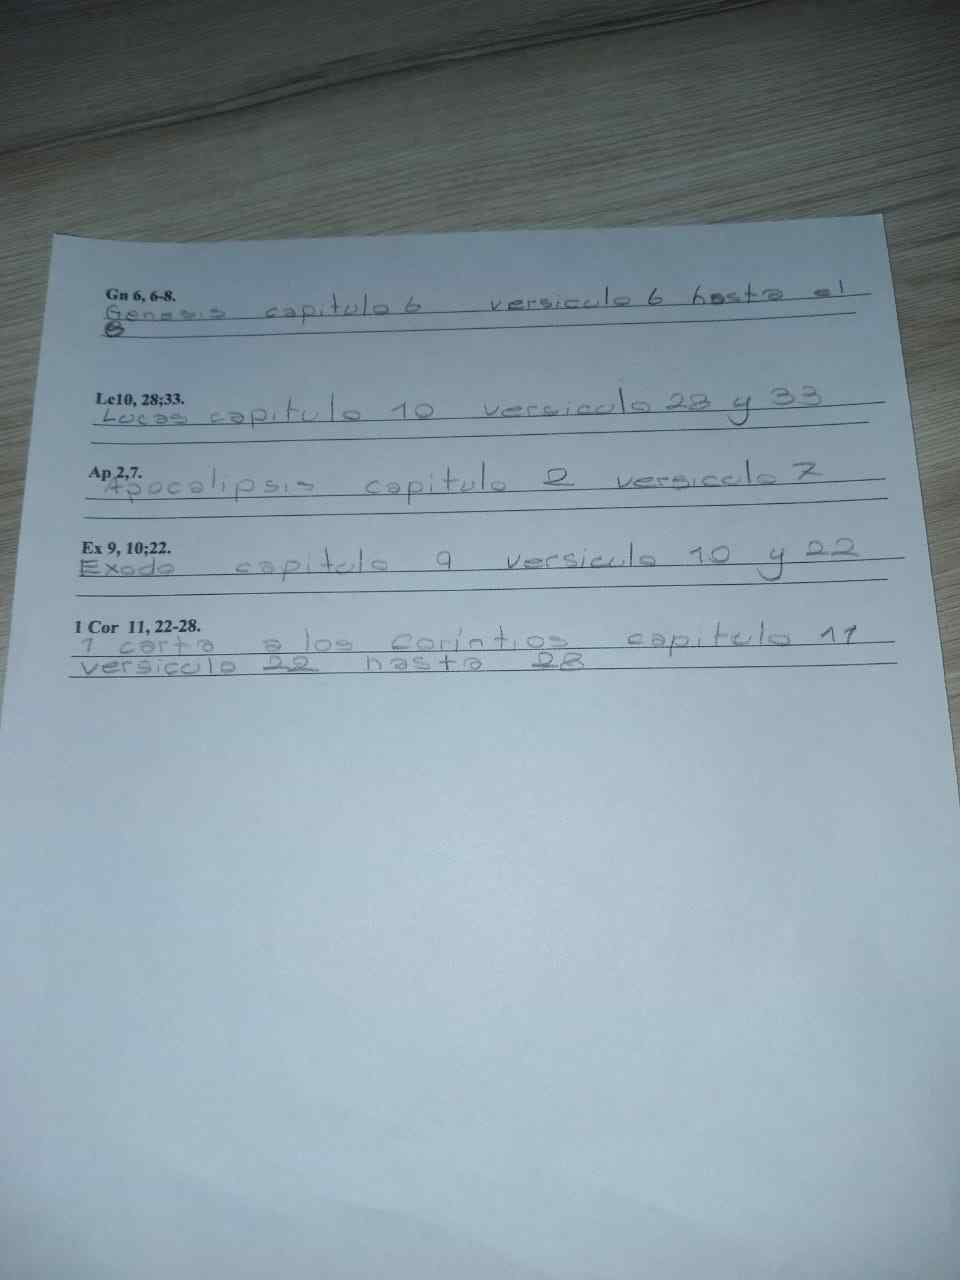 Gn 6, 6-8.
Genesis capitulo 6 versiculo 6 hasta el
8
Lc10, 28;33.
Lucas capitulo 10 versiculo 28 y 33
Ap 2,7.
Apocalipsis capitulo 2 versiculo 7
Ex 9, 10;22.
Exodo capitulo 9 versiculo 10 y 22
1 Cor 11, 22-28.
1 carta a los corintios capitulo 11
versiculo 22 hasta 28